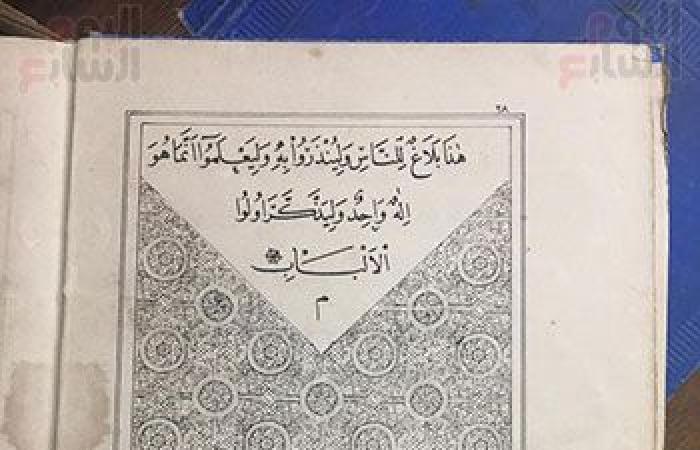 اليوم السابع
اليوم السابع
٢٨
هٰذَا بَلَاغٌ لِلنَّاسِ وَلِيُنْذَرُوا بِهِ وَلِيَعْلَمُوٓا اَنَّمَا هُوَ
اِلٰهٌ وَاحِدٌ وَلِيَذَّكَّرَ اُولُوا
الْاَلْبَابِ
م